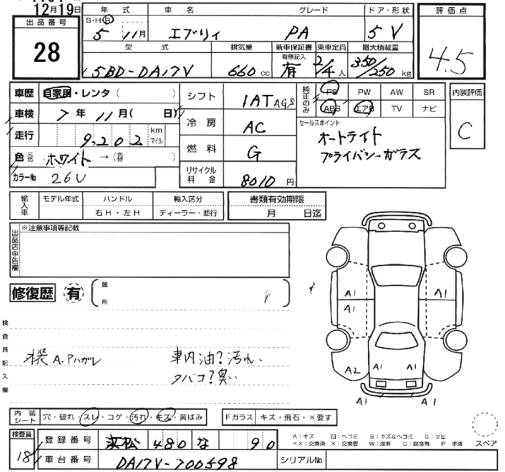 12月19日
出品番号
28
年式 車名 グレード ドア・形状
S・H・R 5年 11月 エブリィ PA 5 V
型式 排気量 新車保証書 乗車定員 最大積載量
有無記入
5BD-DA17V 660cc 有 2/4人 350/250kg
評価点
4.5
車歴 自家用・レンタ( )
車検 7年 11月( 日)
走行 9,202 km マイル
色 ホワイト →( )
カラー№ 26U
シフト 1AT AGS
冷房 AC
燃料 G
リサイクル料金 8010円
純正のみ PS PW AW SR
ABS エアB TV ナビ
セールスポイント
オートライト
プライバシーガラス
内装評価
C
輸入車 モデル年式 ハンドル 輸入区分
右H・左H ディーラー・並行
書類有効期限
月 日迄
出品店申告欄
※注意事項等記載
修復歴 有
箇所
検査員記入欄
A.Pハガレ
車内油?汚れ
タバコ?臭い
A1 A1 A1
A1 A1
A2 A1 A1
内装シート 穴・破れ・スレ・コゲ・汚れ・キズ・黄ばみ
Fガラス キズ・飛石・×要す
検査員
18
登録番号 浜松 480 な 90
車台番号 DA17V-700598
シリアル№
A:キズ
スペア